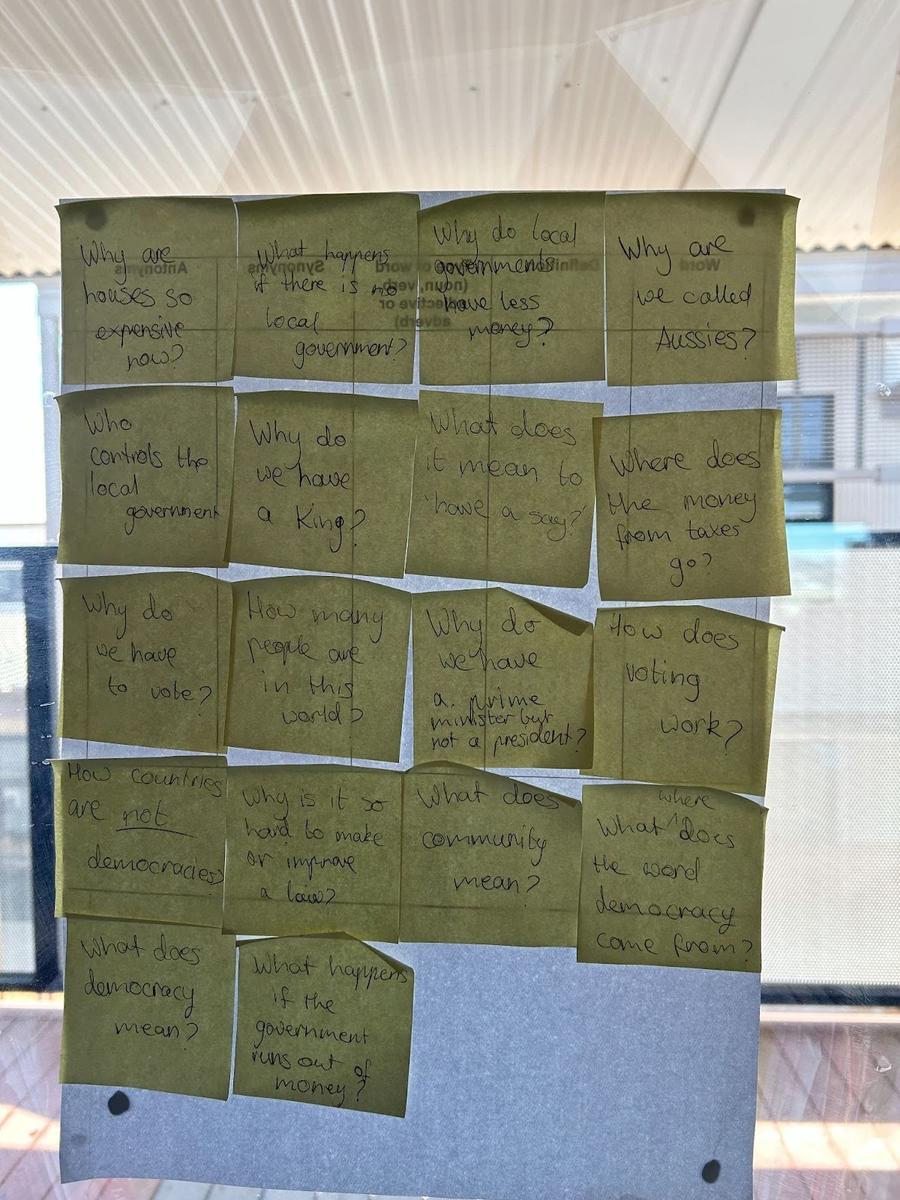 Why are
houses so
expensive
now?
What happens
if there is no
local
government?
Why do local
governments
have less
money?
Why are
we called
Aussies?
Who
controls the
local
government
Why do
we have
a King?
What does
it mean to
'have a say?'
Where does
the money
from taxes
go?
Why do
we have
to vote?
How many
people are
in this
world?
Why do
we have
a prime
minister but
not a president?
How does
voting
work?
How countries
are not
democracies?
Why is it so
hard to make
or improve
a law?
What does
community
mean?
where
What does
the word
democracy
come from?
What does
democracy
mean?
What happens
if the
government
runs out of
money?
Antonyms
Synonyms
of word
(noun, verb,
adjective or
adverb)
Definition
Word